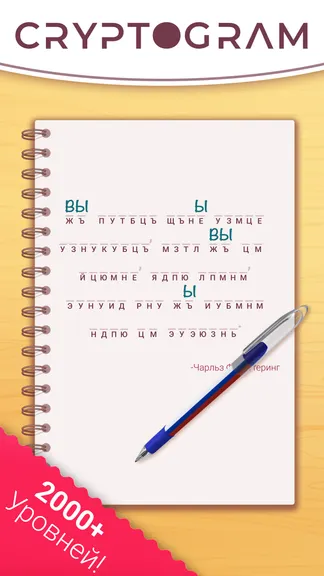 CRYPTOGRAM
ВЫ Ы
ЖЪ ПУТБЦЪ ЩЪНЕ УЗМЦЕ
ВЫ
УЗНУКУБЦЪ, МЗТЛ ЖЪ ЦМ
ЙЦЮМНЕ, ЯДПЮ ЛПМНМ
Ы
ЭУНУИД РНУ ЖЪ ИУБМНМ
НДПЮ ЦМ ЭУЭЮЗНЬ"
-Чарльз
2000+
уровней!